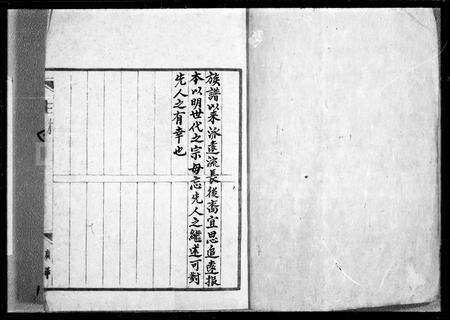 族譜以來派遠流長後裔宜思追遠振
本以明世代之宗毋忘先人之繼述可對
先人之有幸也